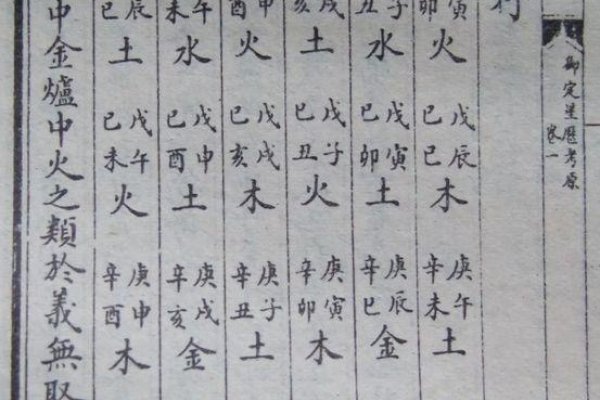 御定星歷考原
卷一
寅卯火 戊辰己巳木 庚午辛未土
子丑水 戊寅己卯土 庚辰辛巳金
土 戊子己丑火 庚寅辛卯木
申酉火 戊戌己亥木 庚子辛丑土
午未水 戊申己酉土 庚戌辛亥金
辰巳土 戊午己未火 庚申辛酉木
中金爐中火之類於義無取